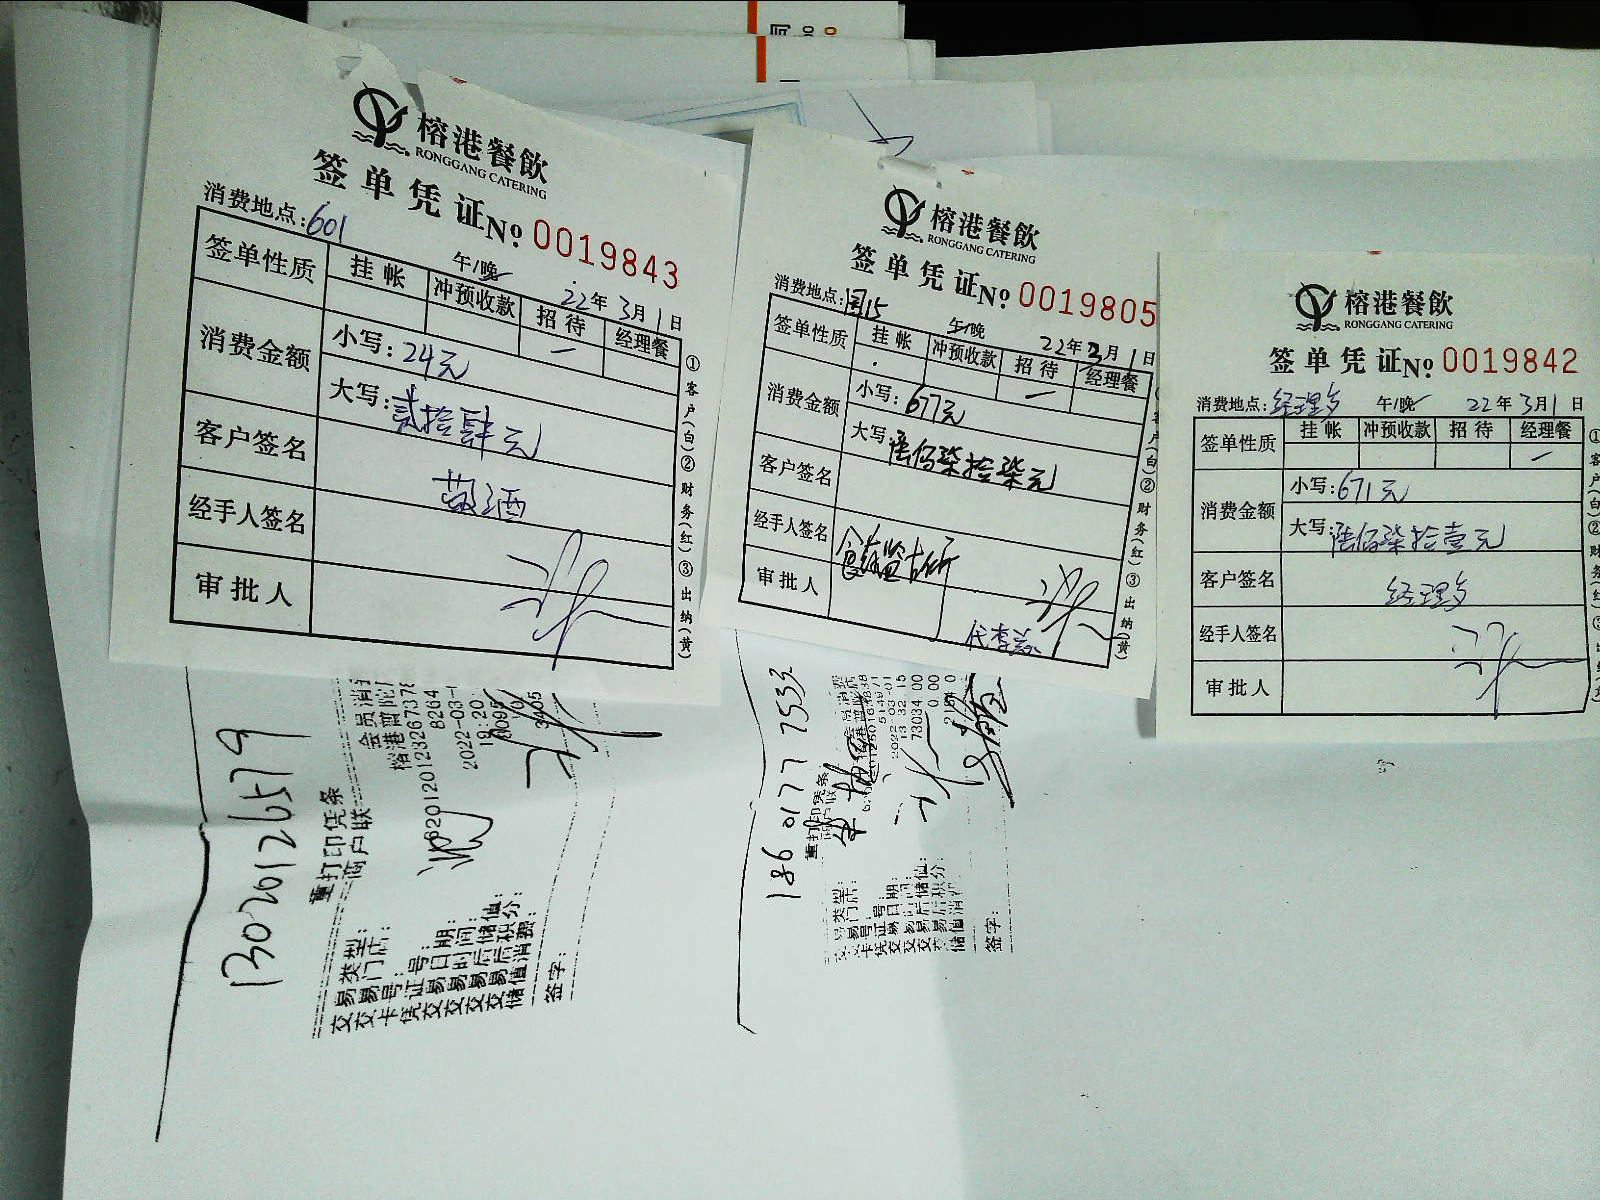 榕港餐飲
RONGGANG CATERING
签单凭证 No 0019843
消费地点:601
午/晚
22年3月1日
签单性质 挂帐 冲预收款 招待 经理餐
消费金额
小写:24元
大写:贰拾肆元
客户签名 敬酒
经手人签名
审批人
①客户(白)②财务(红)③出纳(黄)
榕港餐飲
RONGGANG CATERING
签单凭证 No 0019805
消费地点:国15
午/晚
22年3月1日
签单性质 挂帐 冲预收款 招待 经理餐
消费金额
小写:677元
大写 陆佰柒拾柒元
客户签名
经手人签名
审批人
客户(白)②财务(红)③出纳(黄)
榕港餐飲
RONGGANG CATERING
签单凭证 No 0019842
消费地点:经理乡 午/晚 22年3月1日
签单性质 挂帐 冲预收款 招待 经理餐
消费金额
小写:671元
大写:陆佰柒拾壹元
客户签名 经理乡
经手人签名
审批人
13020126579
重打印凭条
商户联
交易类型: 会员消
交易门店: 榕港普陀
卡号: 6201201232673
凭证号: 8264
交易日期: 2022-03-
交易时间: 19:20
交易后储值:
交易后积分:
储值消费: 3405
签字:
186 0177 7533
重打印凭条
交易类型: 会员消费
交易门店:
卡号:
凭证号: 514971
交易日期: 2022-03-01
交易时间: 13 32 15
交易后储值: 73034 00
交易后积分: 0 00
储值消
签字: